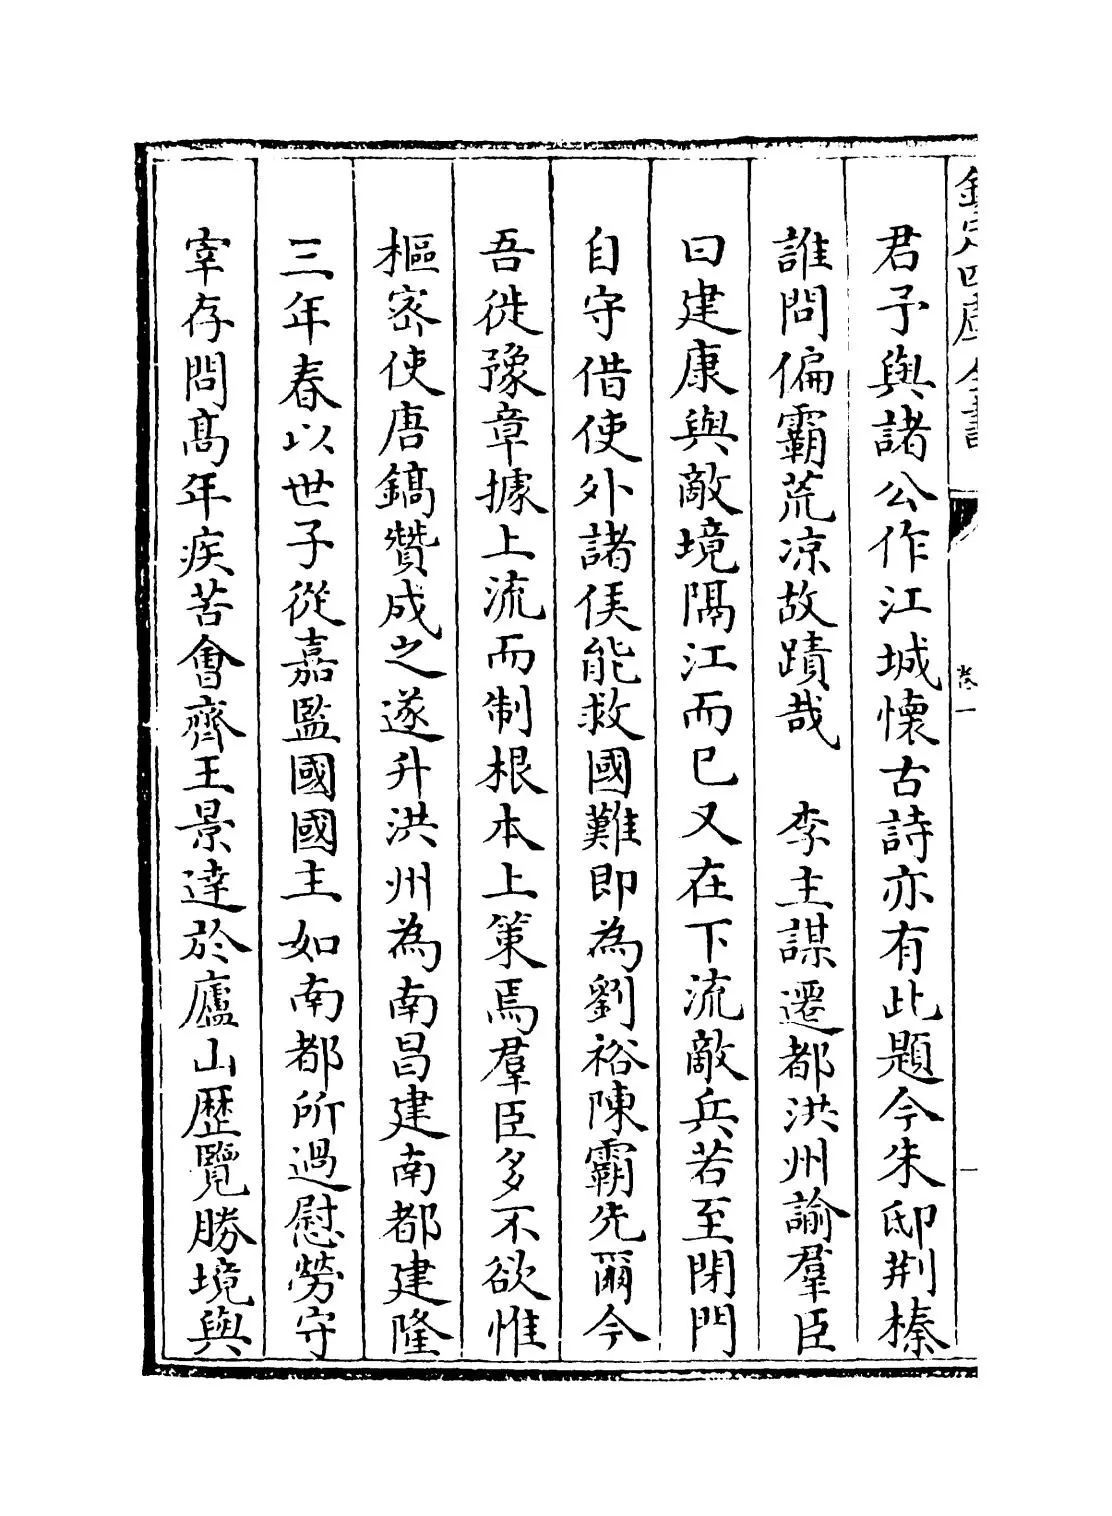 欽定四庫全書
卷一
君子與諸公作江城懷古詩亦有此題今朱邸荆榛
誰問偏霸荒凉故蹟哉　李主謀遷都洪州諭羣臣
曰建康與敵境隔江而已又在下流敵兵若至閉門
自守借使外諸侯能救國難即為劉裕陳霸先爾今
吾徙豫章據上流而制根本上策焉羣臣多不欲惟
樞密使唐鎬贊成之遂升洪州為南昌建南都建隆
三年春以世子從嘉監國國主如南都所過慰勞守
宰存問髙年疾苦會齊王景達於廬山歴覽勝境與